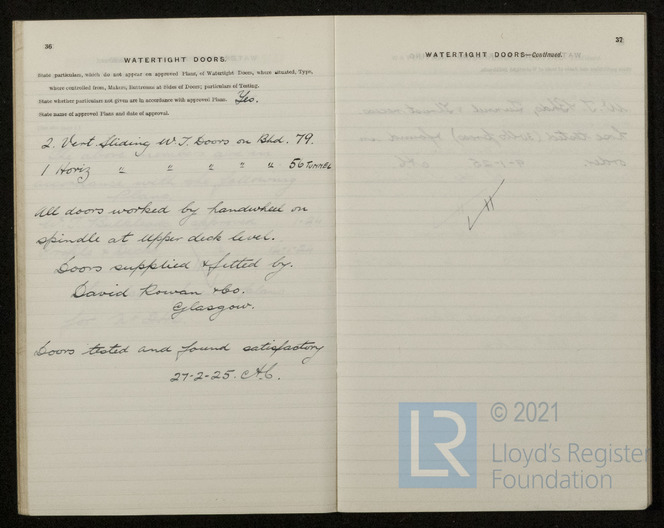 36
WATERTIGHT DOORS.
State particulars, which do not appear on approved Plans, of Watertight Doors, where situated, Type,
where controlled from, Makers, Distances at Sides of Doors; particulars of Testing.
State whether particulars not given are in accordance with approved Plans. Yes.
State name of approved Plans and date of approval.
2. Vert Sliding W.T. Doors on Bhd. 79.
1 Horiz " " " " " 56 TUNNEL
All doors worked by handwheel on
spindle at Upper deck level.
Doors supplied & fitted by.
David Rowan & Co.
Glasgow.
Doors tested and found satisfactory
27-2-25.
37
WATERTIGHT DOORS—Continued.
LR
© 2021
Lloyd's Register
Foundation